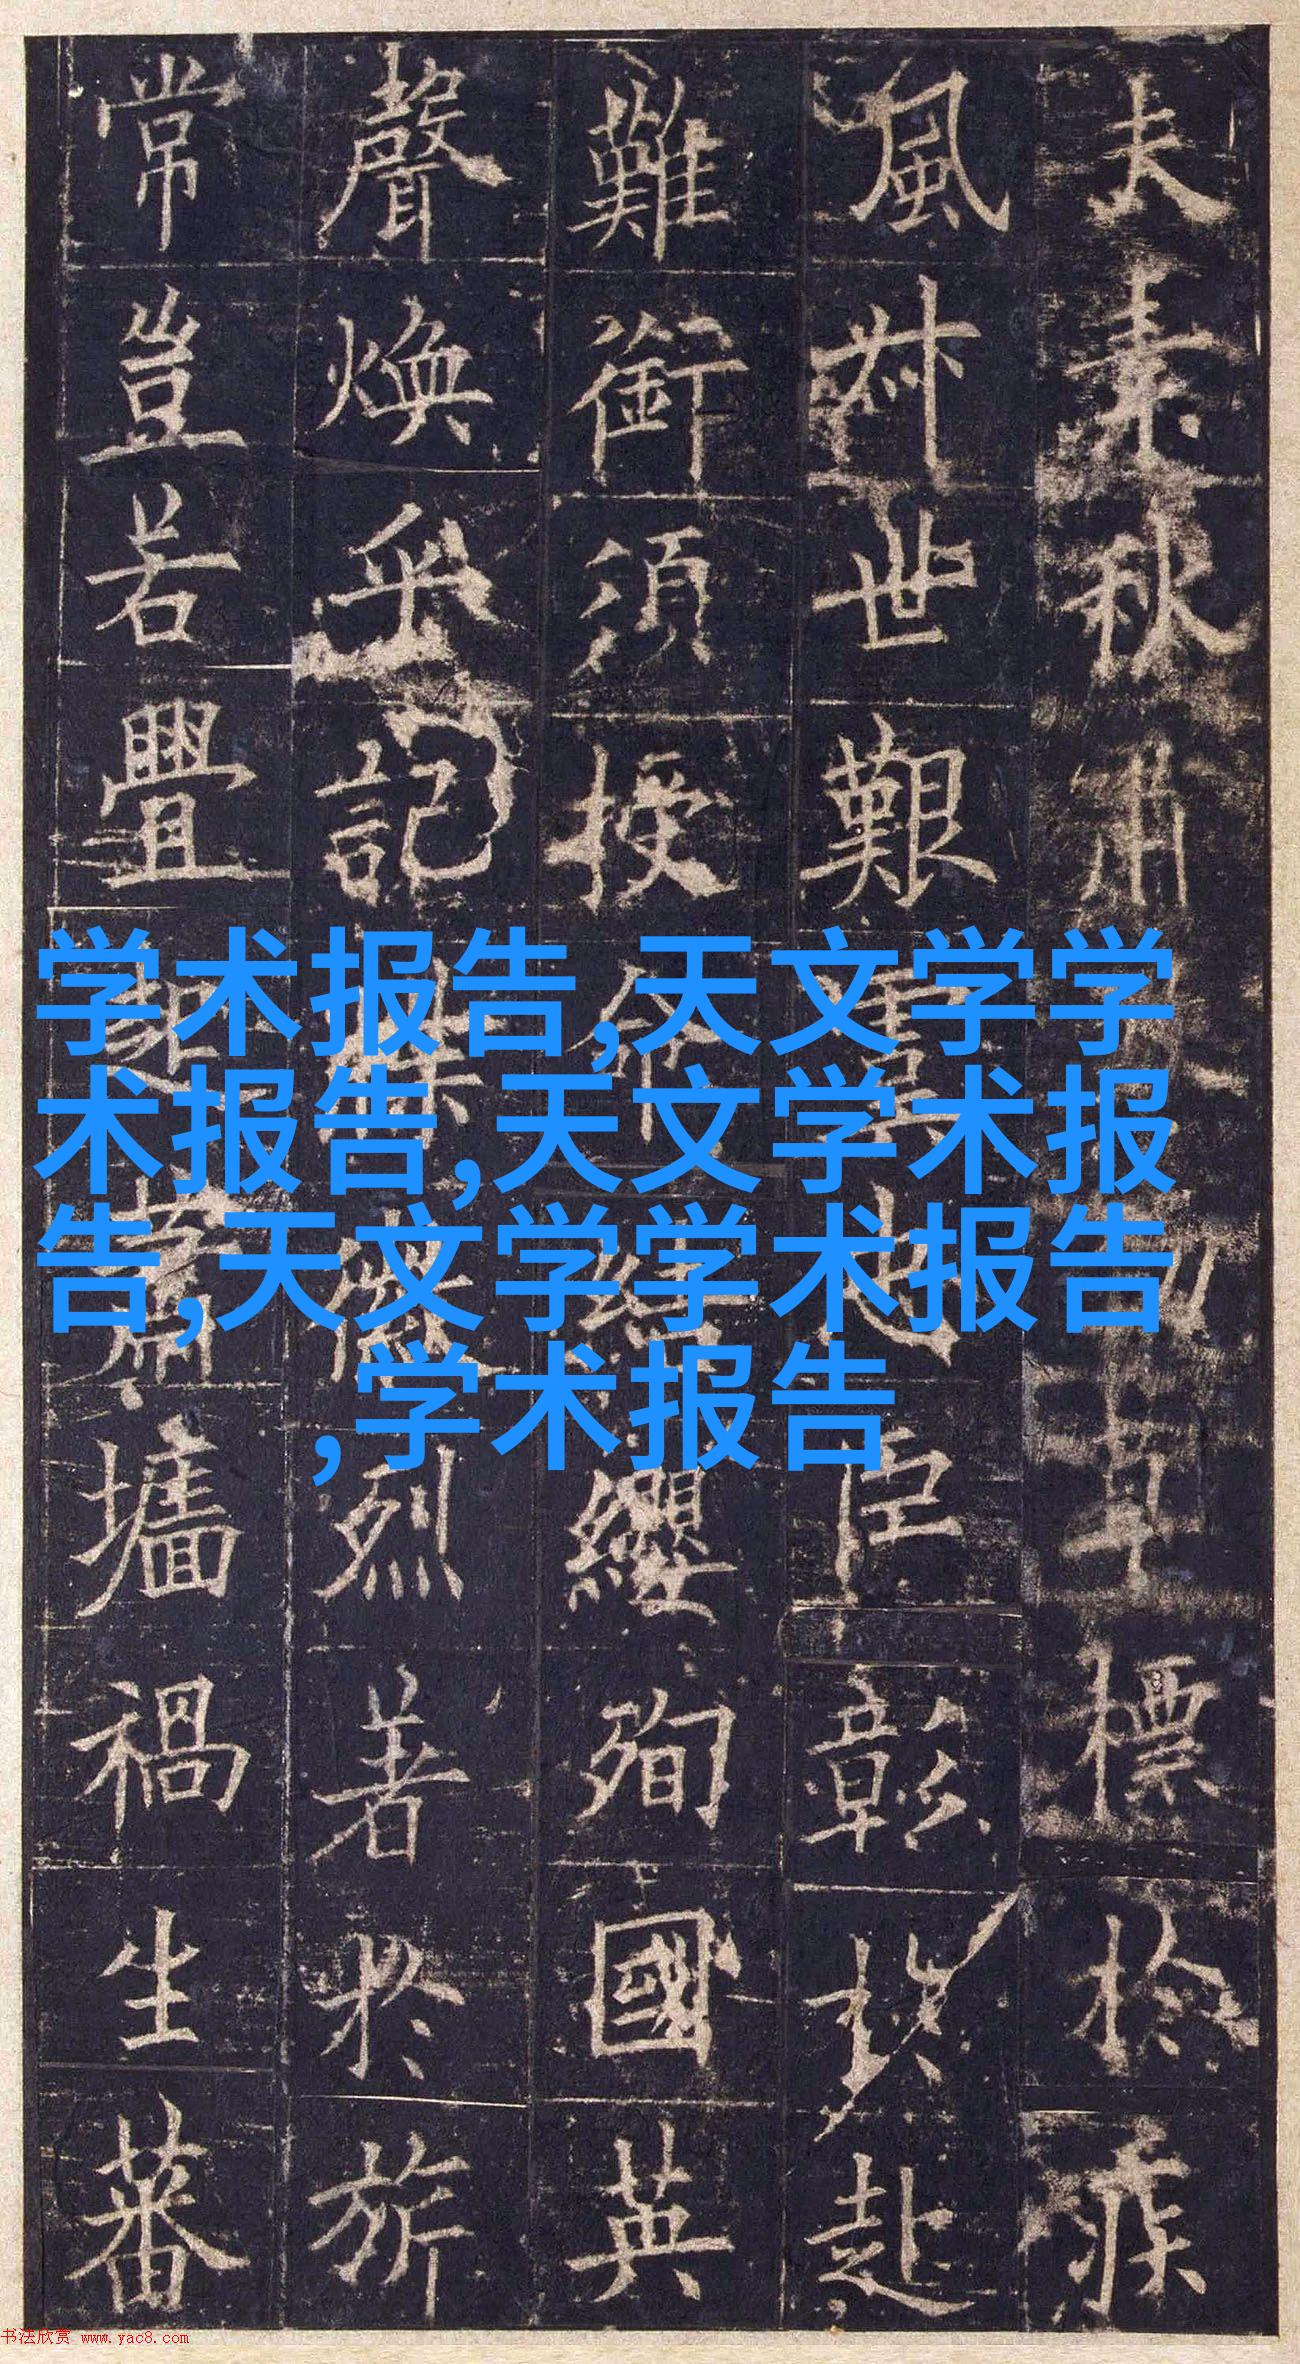 夫素秋肅
標於疾
風叔世艱
臣彰於赴
難銜須授命
纓殉國英
聲煥乎記牒
烈著於旂
常豈若舋起蕭
墻禍生蕃
学术报告,天文学学
术报告,天文学术报
告,天文学学术报告
,学术报告
书法欣赏 www.yac8.com